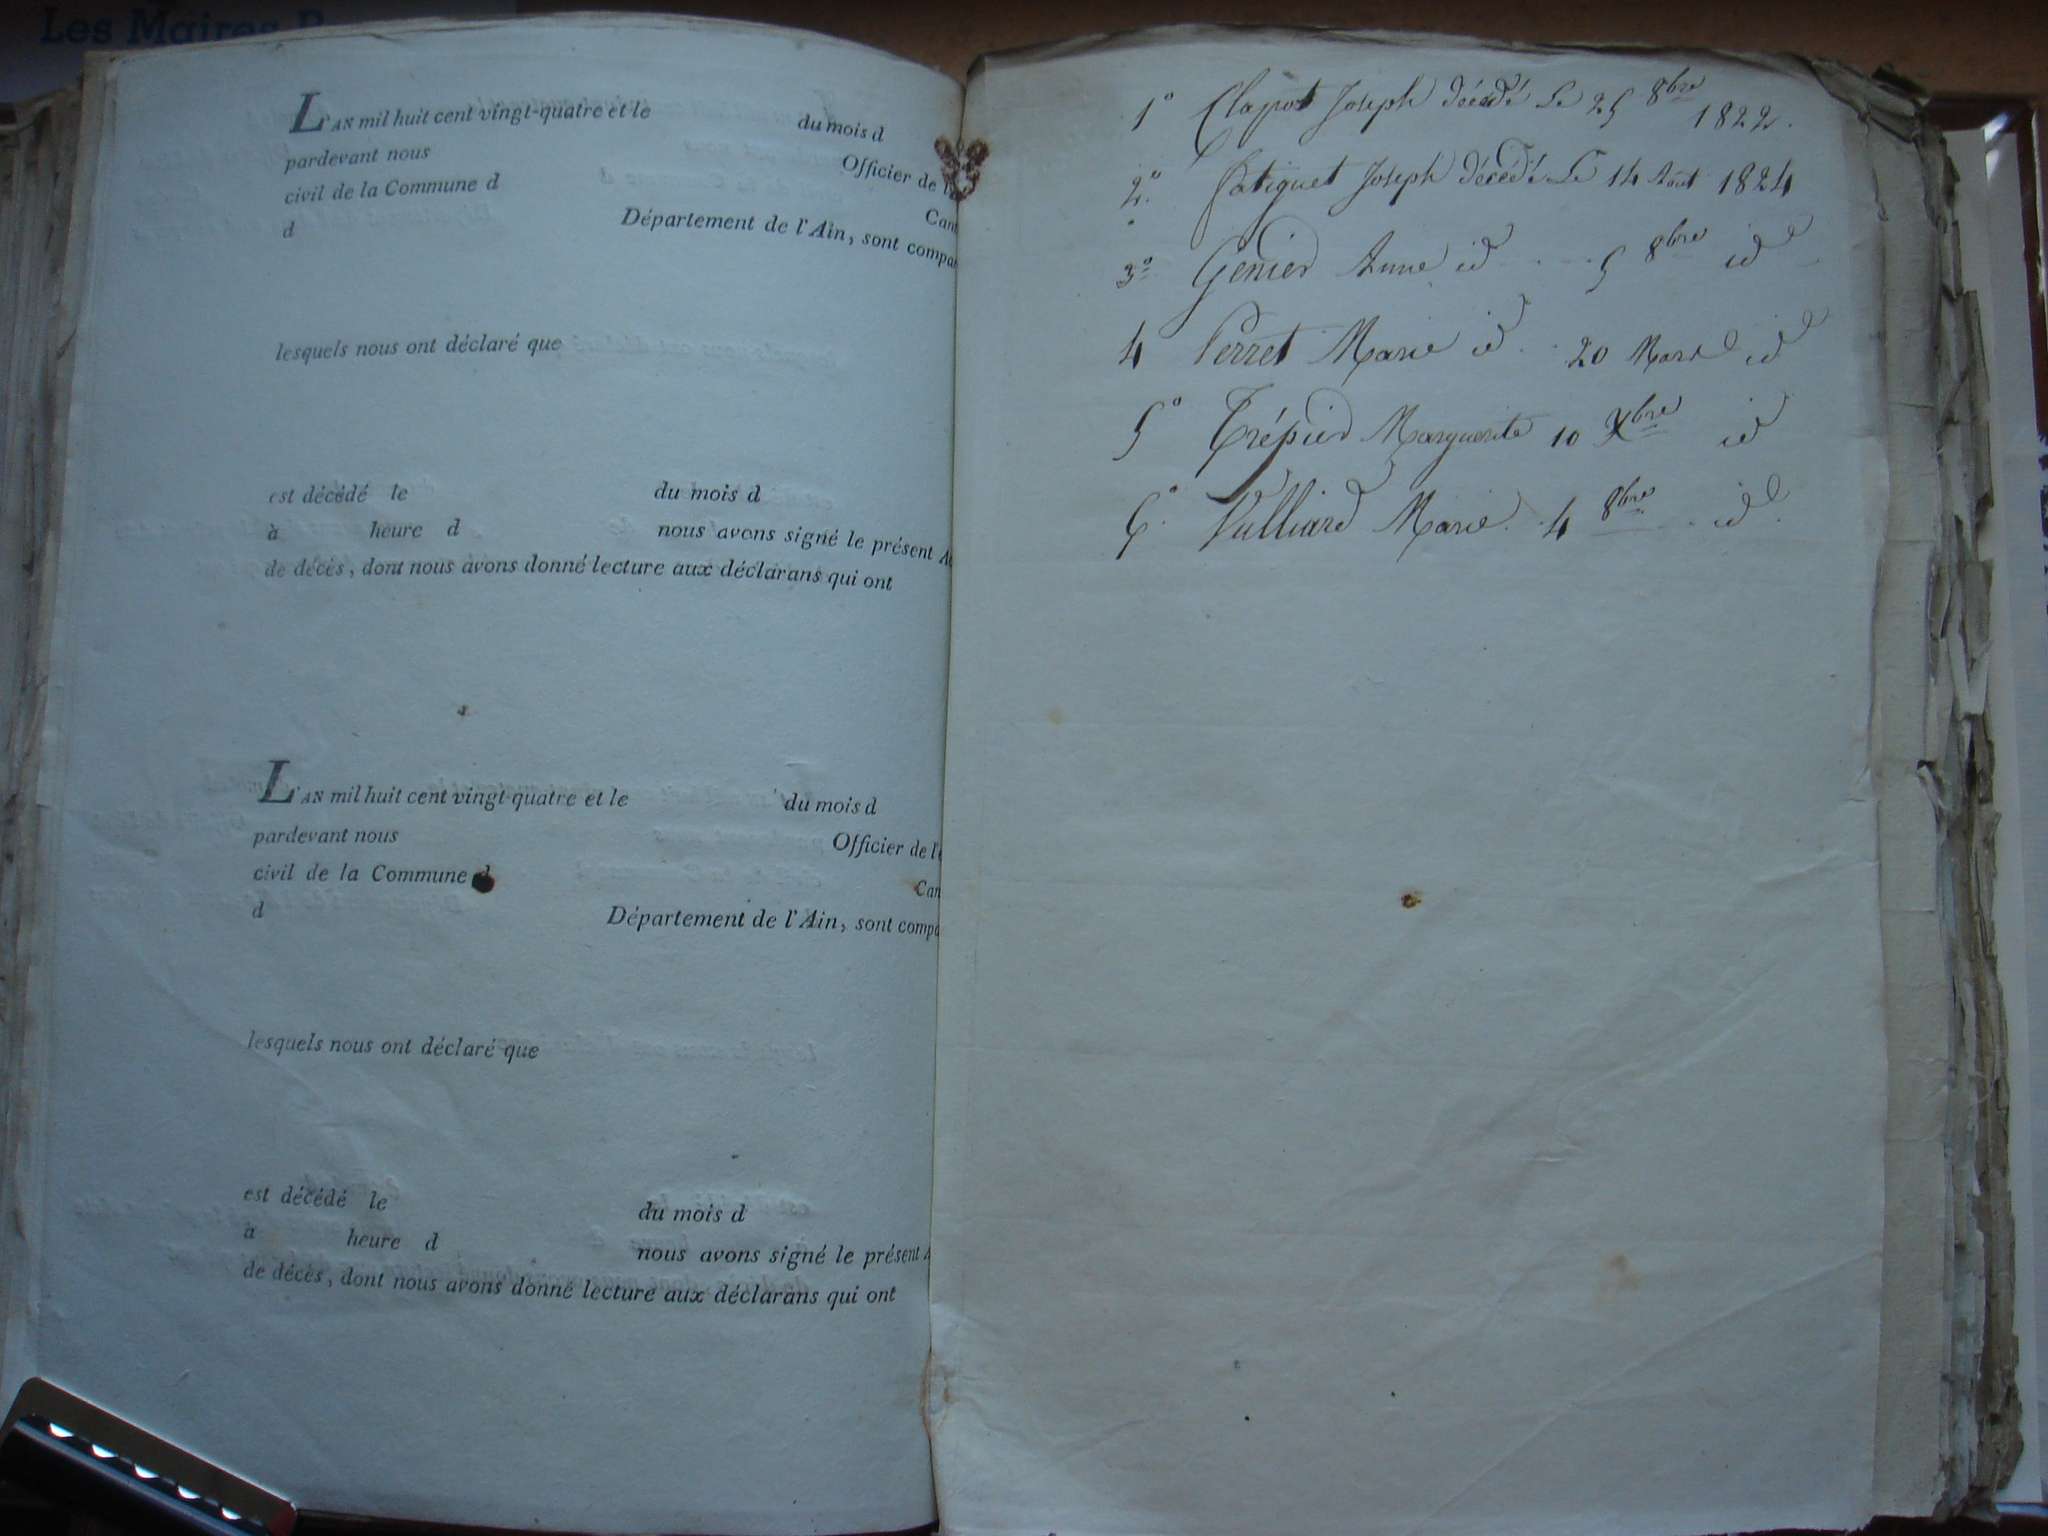 Les Maires
L'AN mil huit cent vingt-quatre et le du mois d
pardevant nous Officier de l'
civil de la Commune d Can
d Département de l'Ain, sont compa
lesquels nous ont déclaré que
est décédé le du mois d
à heure d nous avons signé le présent A
de décès, dont nous avons donné lecture aux déclarans qui ont
L'AN mil huit cent vingt-quatre et le du mois d
pardevant nous Officier de l'
civil de la Commune d Can
d Département de l'Ain, sont compa
lesquels nous ont déclaré que
est décédé le du mois d
à heure d nous avons signé le présent A
de décès, dont nous avons donné lecture aux déclarans qui ont
1° Clapot Joseph décédé Le 25 8bre 1822.
2° Joseph décédé Le 14 Août 1824
3° Genier Anne id 5 8bre id
4 Perret Marie id 20 Mars id
5° Trépier Marguerite 10 Xbre id
6° Vulliard Marie 4 8bre id